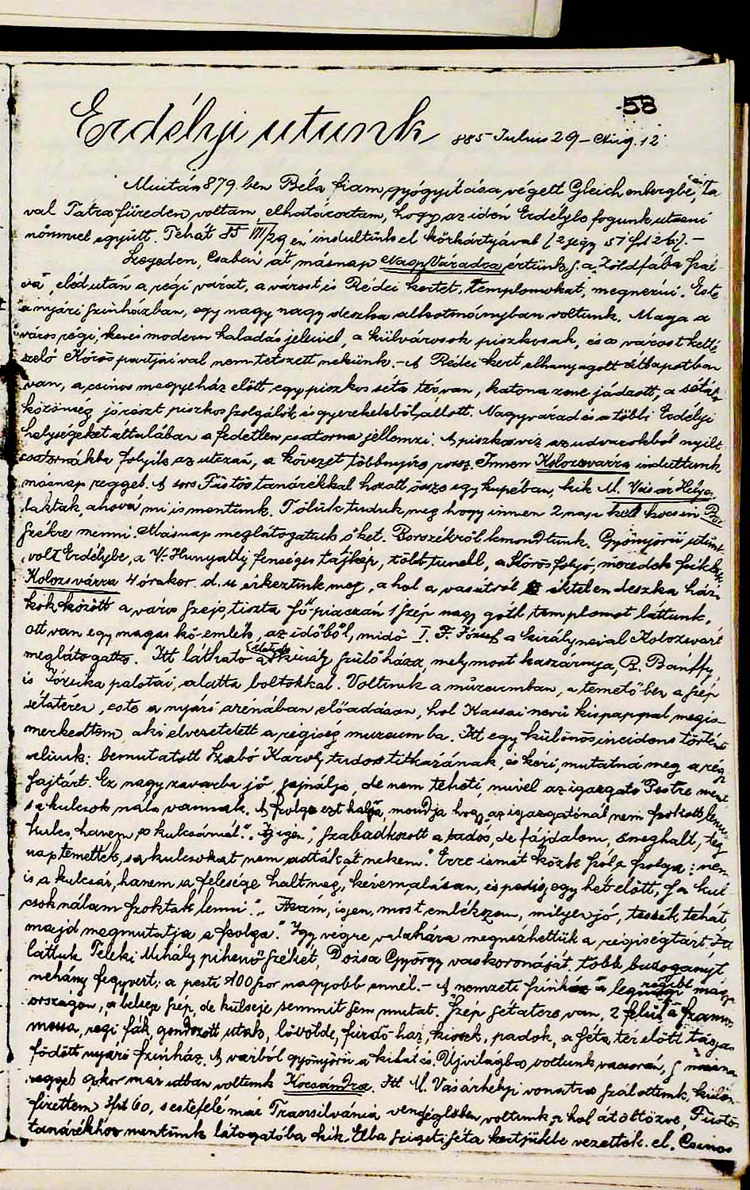 58
Erdélyi utunk 885 Julius 29 – Aug. 12
Miután 879. ben Béla fiam gyógyitása végett Gleichenbergbe, ta
val Tátrafüreden voltam, elhatároztam, hogy az idén Erdélybe fogunk utazni
nőmmel együtt. Tehát 85 VII/29 én indultunk el körkártyával (2 jegy 51 ft 26). –
Szegeden, Csabán át másnap Nagyváradra értünk, a Zöldfába szál
va, ebéd után a régi várat, a várost és Rédei kertet, templomokat, megnézni. Este
a nyári szinházban, egy nagy nagy deszka alkotmányban voltunk. Maga a
város régi, kevés modern haladás jeleivel, a külvárosok piszkosak, és a várost ketté
szelő Körös partjaival nem tetszett nekünk. – A Rédei kert elhanyagolt állapotban
van, a csinos megyeház előtt egy piszkos séta tér van, katona zene játszott, a sétáló
közönség jórészt piszkos szolgálók és gyerekekből állott. Nagyvárad és a többi Erdélyi
helységeket általában a fedetlen csatorna jellemzi. A piszkos viz az udvarokból nyilt
csatornákba folyik az utczán, a kövezet többnyire rossz. Innen Kolozsvárra indultunk
másnap reggel. A sors Füstös tanárékkal hozott össze egy kupéban, kik M. Vásárhelyt
laktak, ahová mi is mentünk. Tőlük tudtuk meg hogy innen 2 nap kell kocsin Bor
székre menni. Másnap meglátogattuk őket. Borszékről lemondtunk. Gyönyörü utunk
volt Erdélybe, a V. Hunyadi fenséges tájkép, több tunell, a Körös folyó, meredek sziklák.
Kolozsvárra 4 órakor d. u érkeztünk meg, a hol a vasútról éktelen deszka há
kok között a város szép, tiszta főpiaczán 1 szép nagy gót templomot láttunk,
ott van egy magas kő emlék, az időből, midő I. F. József a királynéval Kolozsvárt
meglátogatta. Itt látható Mátyás király szülőháza, mely most kaszárnya, B. Bánffy
is Jósika palotái, alatta boltokkal. Voltunk a múzeumban, a temetőben a szép
sétatéren, este a nyári arenában előadáson, hol Kassai nevű kispappal megis
merkedtem aki elvezetett a régiség muzeumba. Itt egy különös incidens történt
velünk: bemutatott Szabó Károly tudós titkárának, és kéri, mutatná meg a régi
ségtárt. Ez nagy zavarba jő sajnálja, de nem teheti, mivel az igazgató Pestre ment
s a kulcsok nála vannak. A szolga ezt hallja, mondja hogy az igazgatónál nem szokott lenni
kulcs, hanem a kulcsárnál". "Igen," szabadkozott a tudós, de fájdalom, ő meghalt, teg
nap temették, s a kulcsokat nem adták át nekem." Erre ismét közbe szól a szolga: nem
is a kulcsár, hanem a felesége halt meg, kérem alásan, és pedig egy hét előtt, s a kul
csok nálam szoktak lenni". Azám, igen, most emlékszem, milyen jó, tessék tehát
majd megmutatja a szolga." Igy végre valahára megnézhettük a régiségtárt. Itt
láttuk Teleki Mihály pihenő székét, Dózsa György vaskoronáját, több buzogányt
néhány fegyvert; a pesti 100 szor nagyobb ennél. – A nemzeti szinház a legrégibb Magyar
országon, a belseje szép, de külseje semmit sem mutat. Szép sétatere van, 2 felül a Szamos
mossa, régi fák, gondozott utak, lövölde, fürdő ház, kioszk, padok, a séta tér előtt tágas
födött nyári szinház. A várból gyönyörü a kilátás. Ujvilágba voltunk vacsorán, s másnap
reggel 9 kor már utban voltunk Kocsárdra. Itt M. Vásárhelyi vonatra szálottunk, külön
fizettem 3 ft 60, s estefelé már Transilvánia vendéglőben voltunk, a hol átöltözve, Füstö
tanárékhoz mentünk látogatóba kik Elba szigeti séta kertjükbe vezettek el. Csinos